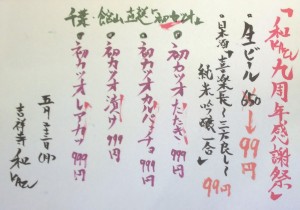 「和　　九周年感謝祭」
・生ビール 650→99円
・日本酒「喜楽長〜三方良し〜
純米吟醸一合
99円
千葉・館山直送『初カツオ』
・初カツオたたき 999円
・初カツオカルパッチョ 999円
・初カツオ漬け 999円
・初カツオレアカツ 999円
五月二十三日(月)
吉祥寺 和